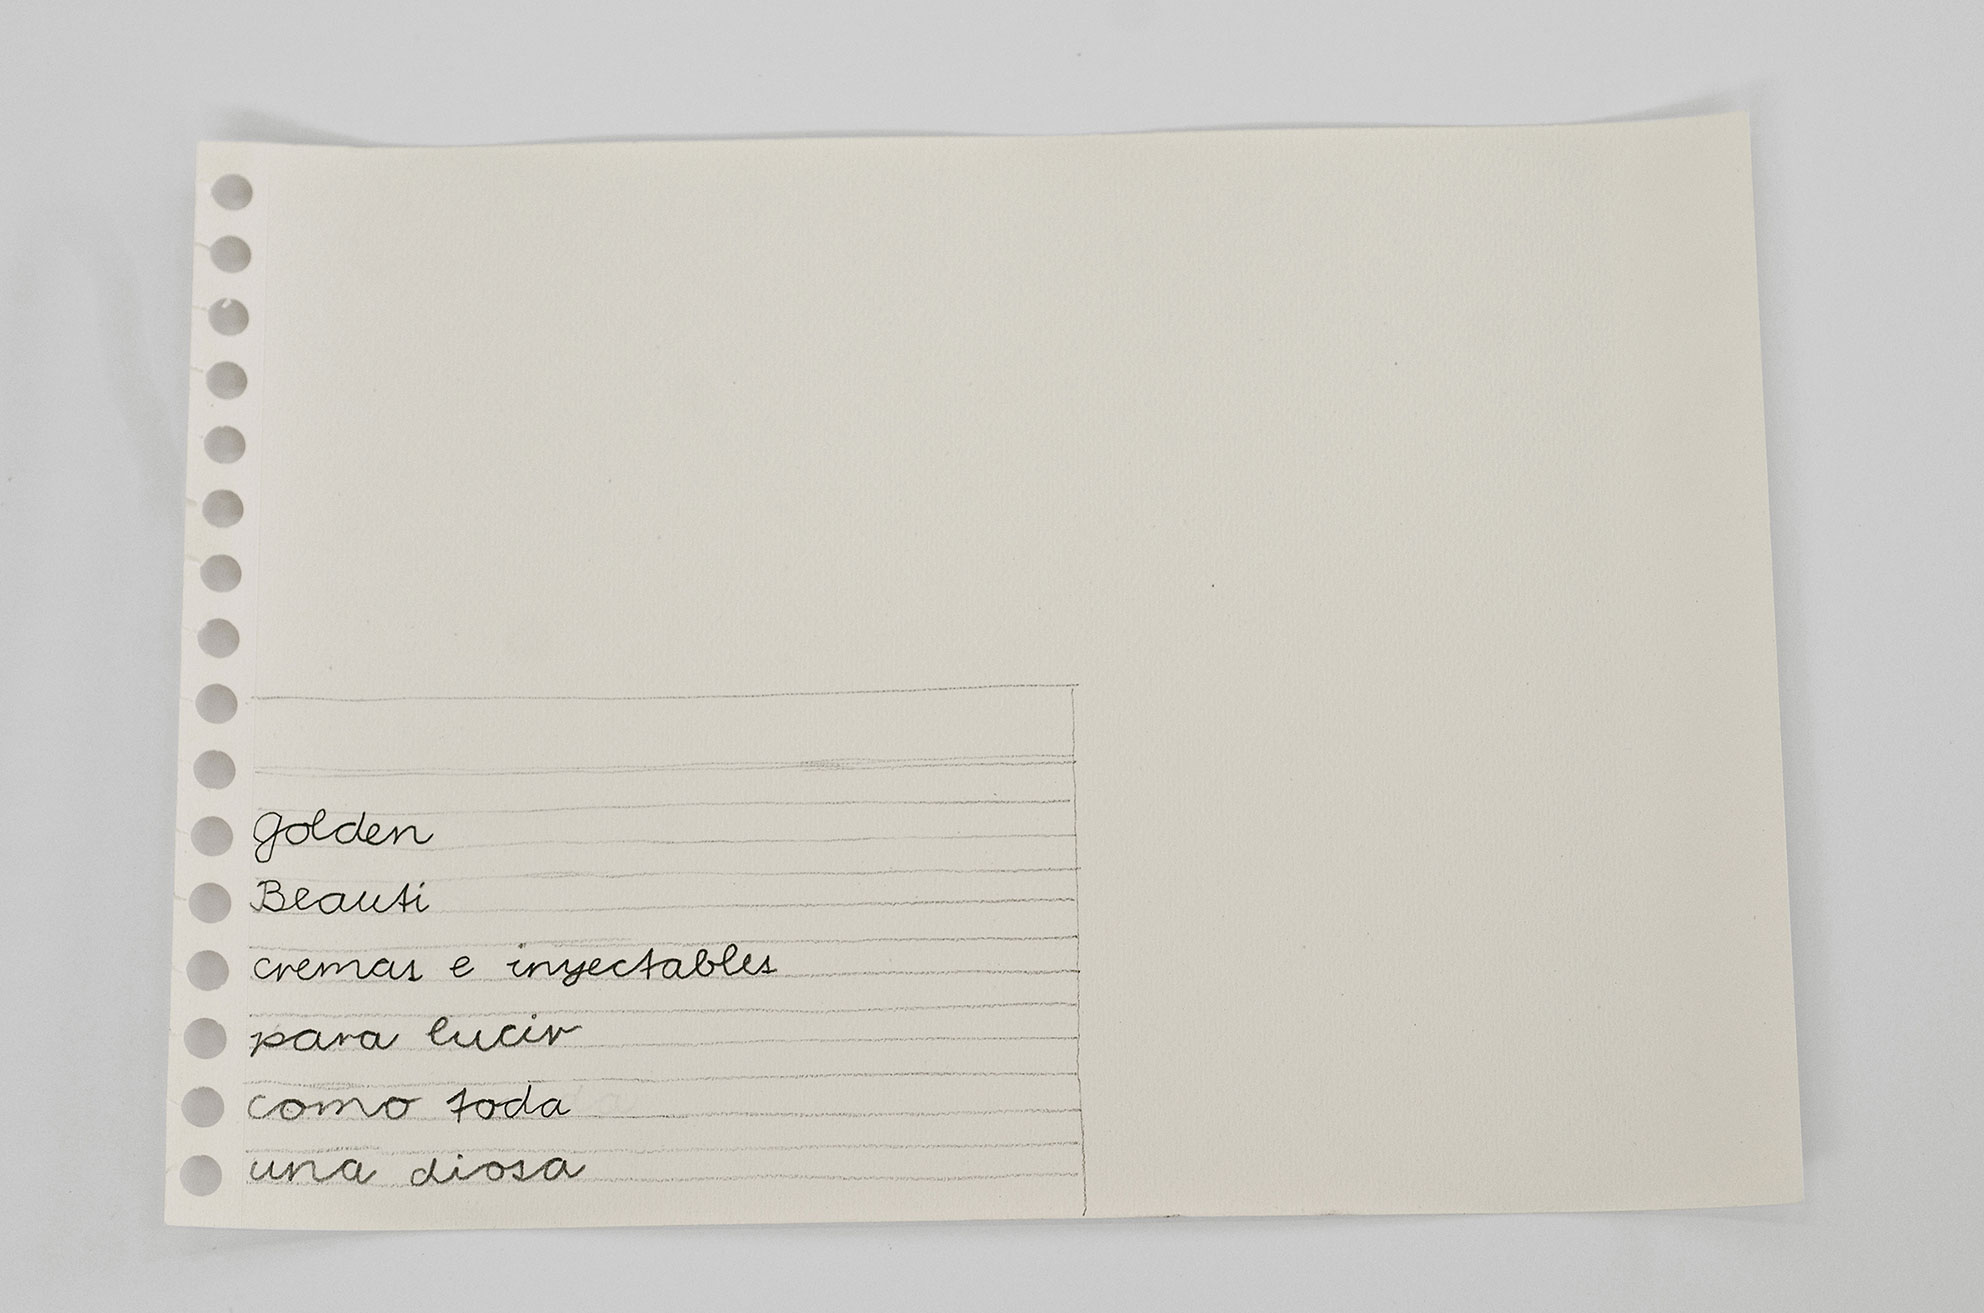 golden
Beauti
cremas e inyectables
para lucir
como toda
una diosa